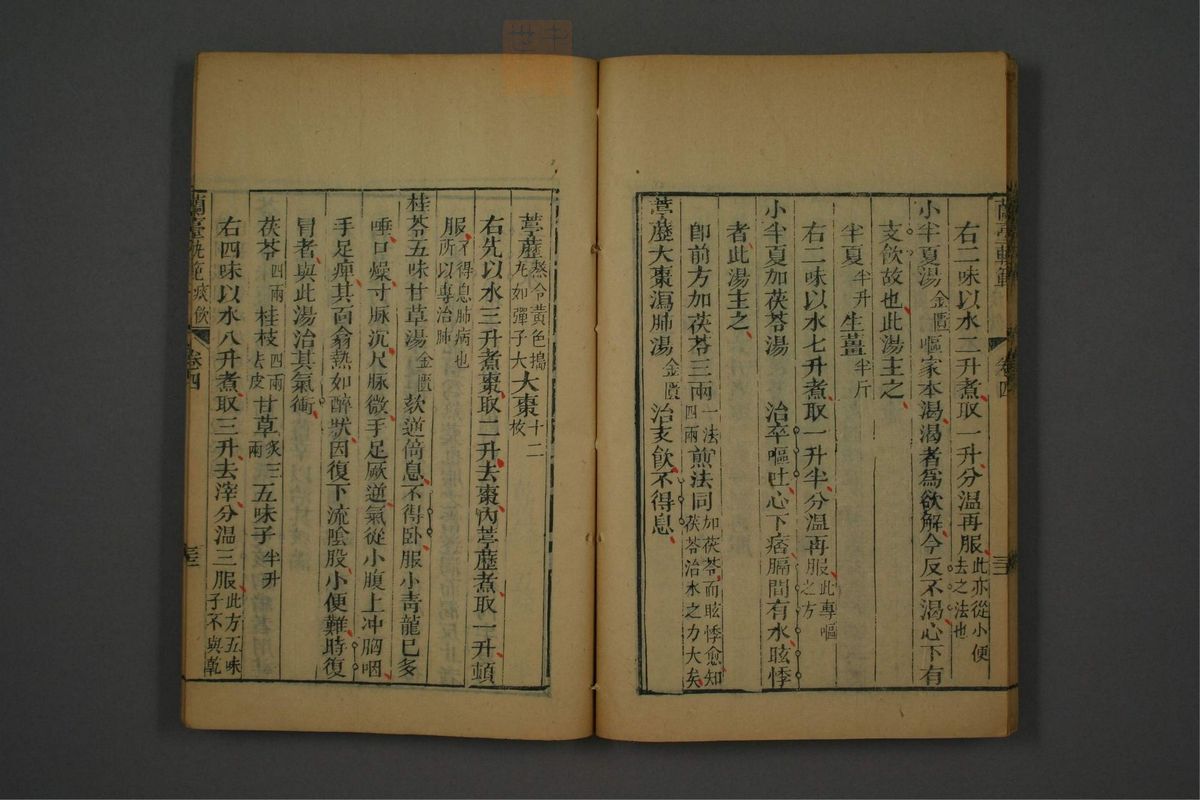 右二味以水二升煮取一升分温再服此亦從小便去之法也
小半夏湯金匱嘔家本渴渴者爲欲解今反不渴心下有
支飲故也此湯主之
半夏半升生薑半斤
右二味以水七升煮取一升半分温再服此專嘔之方
小半夏加茯苓湯治卒嘔吐心下痞膈間有水眩悸
者此湯主之
卽前方加茯苓三兩一法四兩煎法同如茯苓而眩悸愈知茯苓治水之力大矣
葶藶大棗瀉肺湯金匱治支飲不得息
卷四
葶藶熬令黃色搗丸如彈子大大棗十二枚
右先以水三升煮棗取二升去棗內葶藶煮取一升頓
服不得息肺病也所以專治肺
桂苓五味甘草湯金匱欬逆倚息不得臥服小青龍已多
唾口燥寸脉沉尺脉微手足厥逆氣從小腹上冲胸咽
手足痺其面翕熱如醉狀因復下流陰股小便難時復
冒者與此湯治其氣衝
茯苓四兩桂枝四兩去皮甘草炙三兩五味子半升
右四味以水八升煮取三升去滓分温三服此方五味子不與乾
蘭臺軌範痰飲卷四